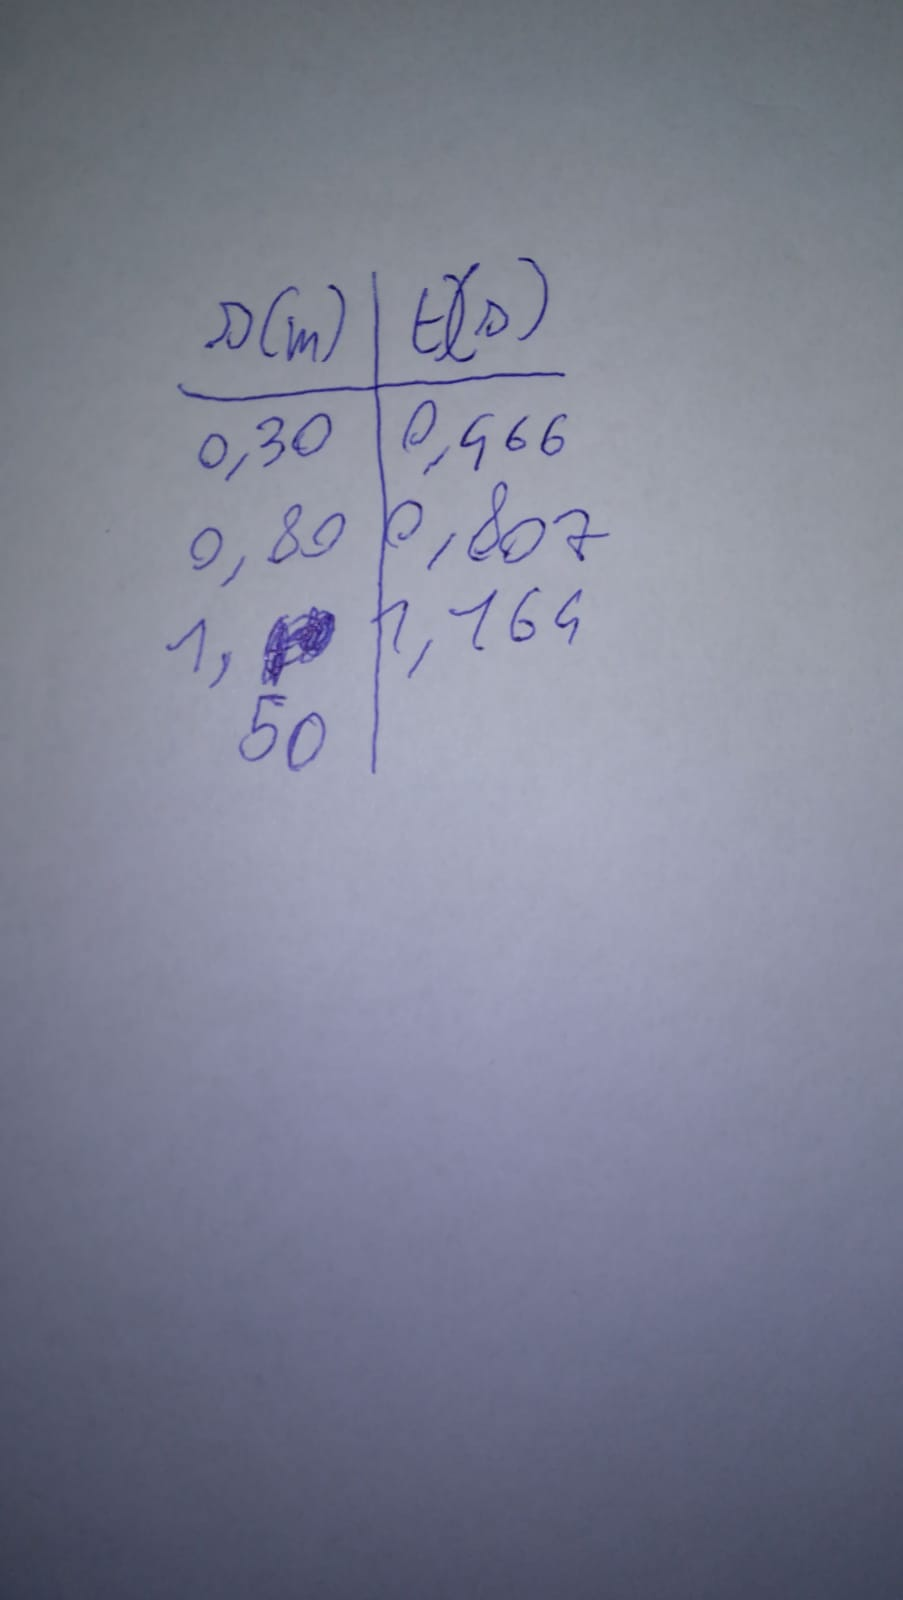 s(m) t(s)
0,30 0,466
0,80 0,807
1, 1,164
50